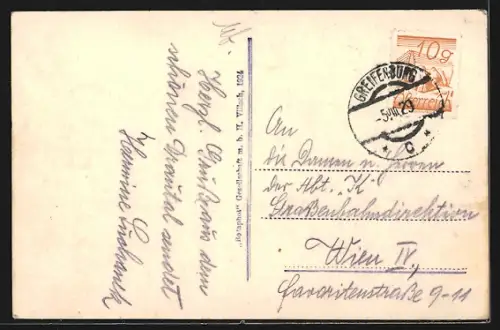 Herzl. Grüße aus dem
schönen Drautal sendet
Hermine
"Rotophot" Gesellschaft m. b. H. Villach, 1924
10g
GREIFENBURG
-5.VIII.29
* C *
An
die Damen u. Herren
der Abt. "K"
Straßenbahndirektion
Wien IV,
Favoritenstraße 9-11